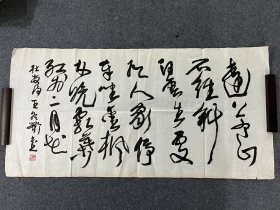 遠上寒山
石徑斜
白雲生處
有人家停
車坐愛楓
林晚霜葉
紅於二月花
杜牧詩